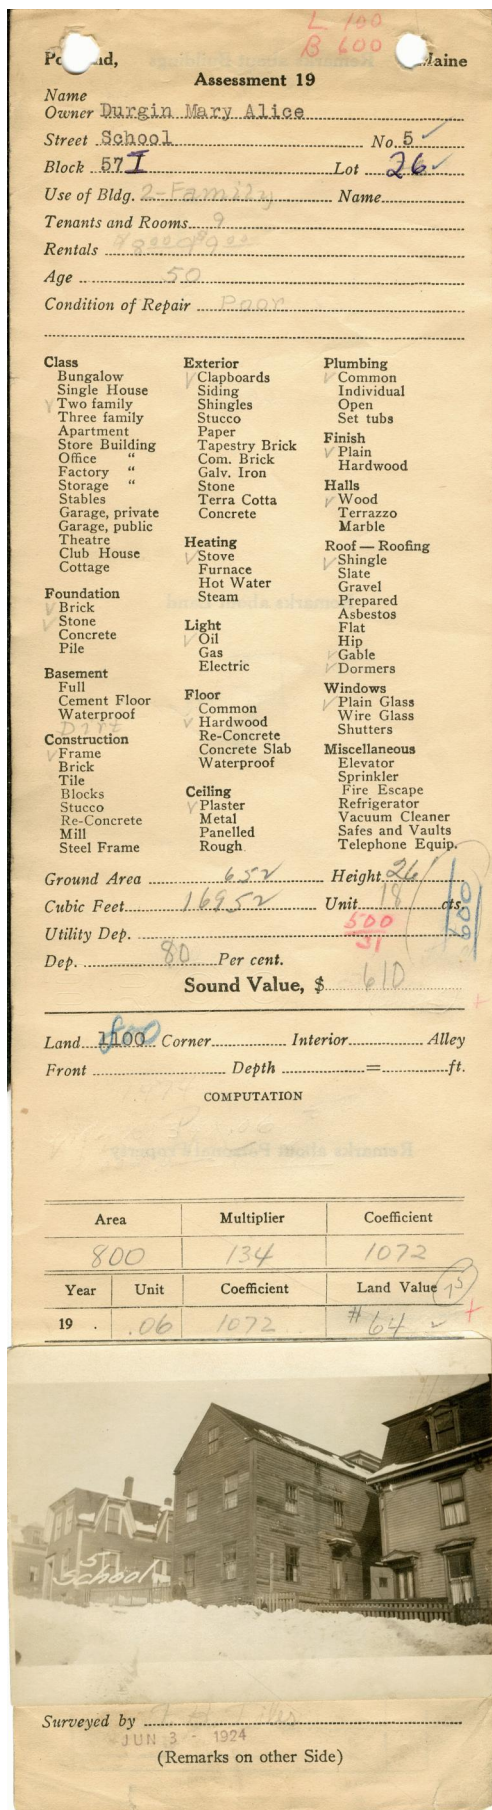 L 100
B 600
Po nd, Maine
Assessment 19
Name
Owner Durgin Mary Alice
Street School No. 5 ✓
Block 57 I Lot 26 ✓
Use of Bldg. 2-Family Name
Tenants and Rooms 9
Rentals
Age 50
Condition of Repair Poor
Class
Bungalow
Single House
✓ Two family
Three family
Apartment
Store Building
Office "
Factory "
Storage "
Stables
Garage, private
Garage, public
Theatre
Club House
Cottage
Foundation
✓ Brick
✓ Stone
Concrete
Pile
Basement
Full
Cement Floor
Waterproof
Dirt
Construction
✓ Frame
Brick
Tile
Blocks
Stucco
Re-Concrete
Mill
Steel Frame
Exterior
✓ Clapboards
Siding
Shingles
Stucco
Paper
Tapestry Brick
Com. Brick
Galv. Iron
Stone
Terra Cotta
Concrete
Heating
✓ Stove
Furnace
Hot Water
Steam
Light
✓ Oil
Gas
Electric
Floor
✓ Common
✓ Hardwood
Re-Concrete
Concrete Slab
Waterproof
Ceiling
✓ Plaster
Metal
Panelled
Rough
Plumbing
✓ Common
Individual
Open
Set tubs
Finish
✓ Plain
Hardwood
Halls
✓ Wood
Terrazzo
Marble
Roof — Roofing
✓ Shingle
Slate
Gravel
Prepared
Asbestos
Flat
Hip
✓ Gable
✓ Dormers
Windows
✓ Plain Glass
Wire Glass
Shutters
Miscellaneous
Elevator
Sprinkler
Fire Escape
Refrigerator
Vacuum Cleaner
Safes and Vaults
Telephone Equip.
Ground Area 652 Height 26
Cubic Feet 16952 Unit 18 cts.
600
Utility Dep. 500
31
Dep. 80 Per cent.
Sound Value, $ 610
Land 1100 800 Corner Interior Alley
Front Depth = ft.
COMPUTATION
Area Multiplier Coefficient
800 134 1072
Year Unit Coefficient Land Value 75
19 . .06 1072 # 64 ✓
5
School
Surveyed by
JUN 3 - 1924
(Remarks on other Side)